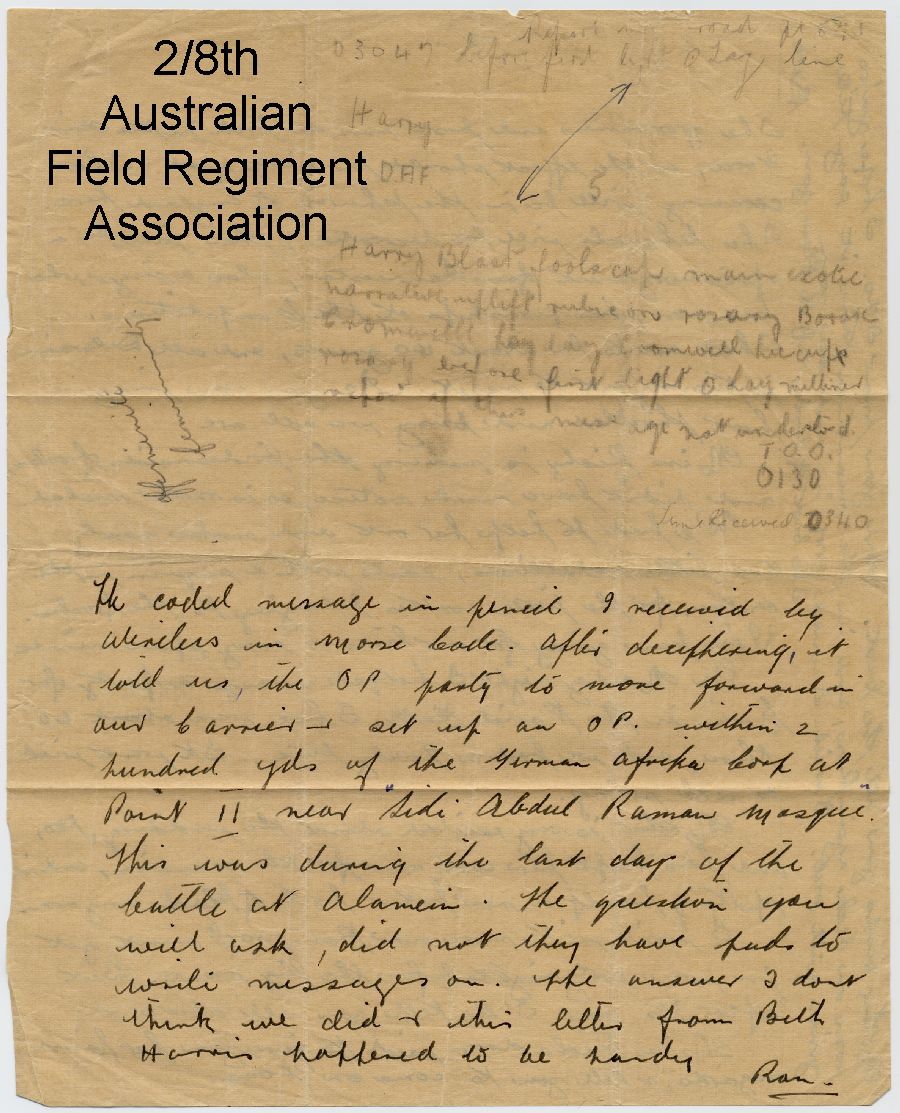 2/8th
Australian
Field Regiment
Association
Report road pt
0304 before first light O Lay line
Harry
DAF
5
Harry Blast foolscap main exotic
narrative uplift rubicon rosary Borax
Cromwell hay day Cromwell hiccups
rosary before first light O Lay milliner
mess age not understood.
T.O.O.
0130
Time Received 0340
The coded message in pencil I received by
wireless in Morse Code. After deciphering, it
told us, the OP party to move forward in
our Carrier & set up an OP. within 2
hundred yds of the German Afrika Corp at
Point II near "Sidi Abdul Raman Mosque".
This was during the last day of the
battle at Alamein. The question you
will ask, did not they have pads to
write messages on. The answer I dont
think we did & this letter from Beth
Harris happened to be handy
Ron.